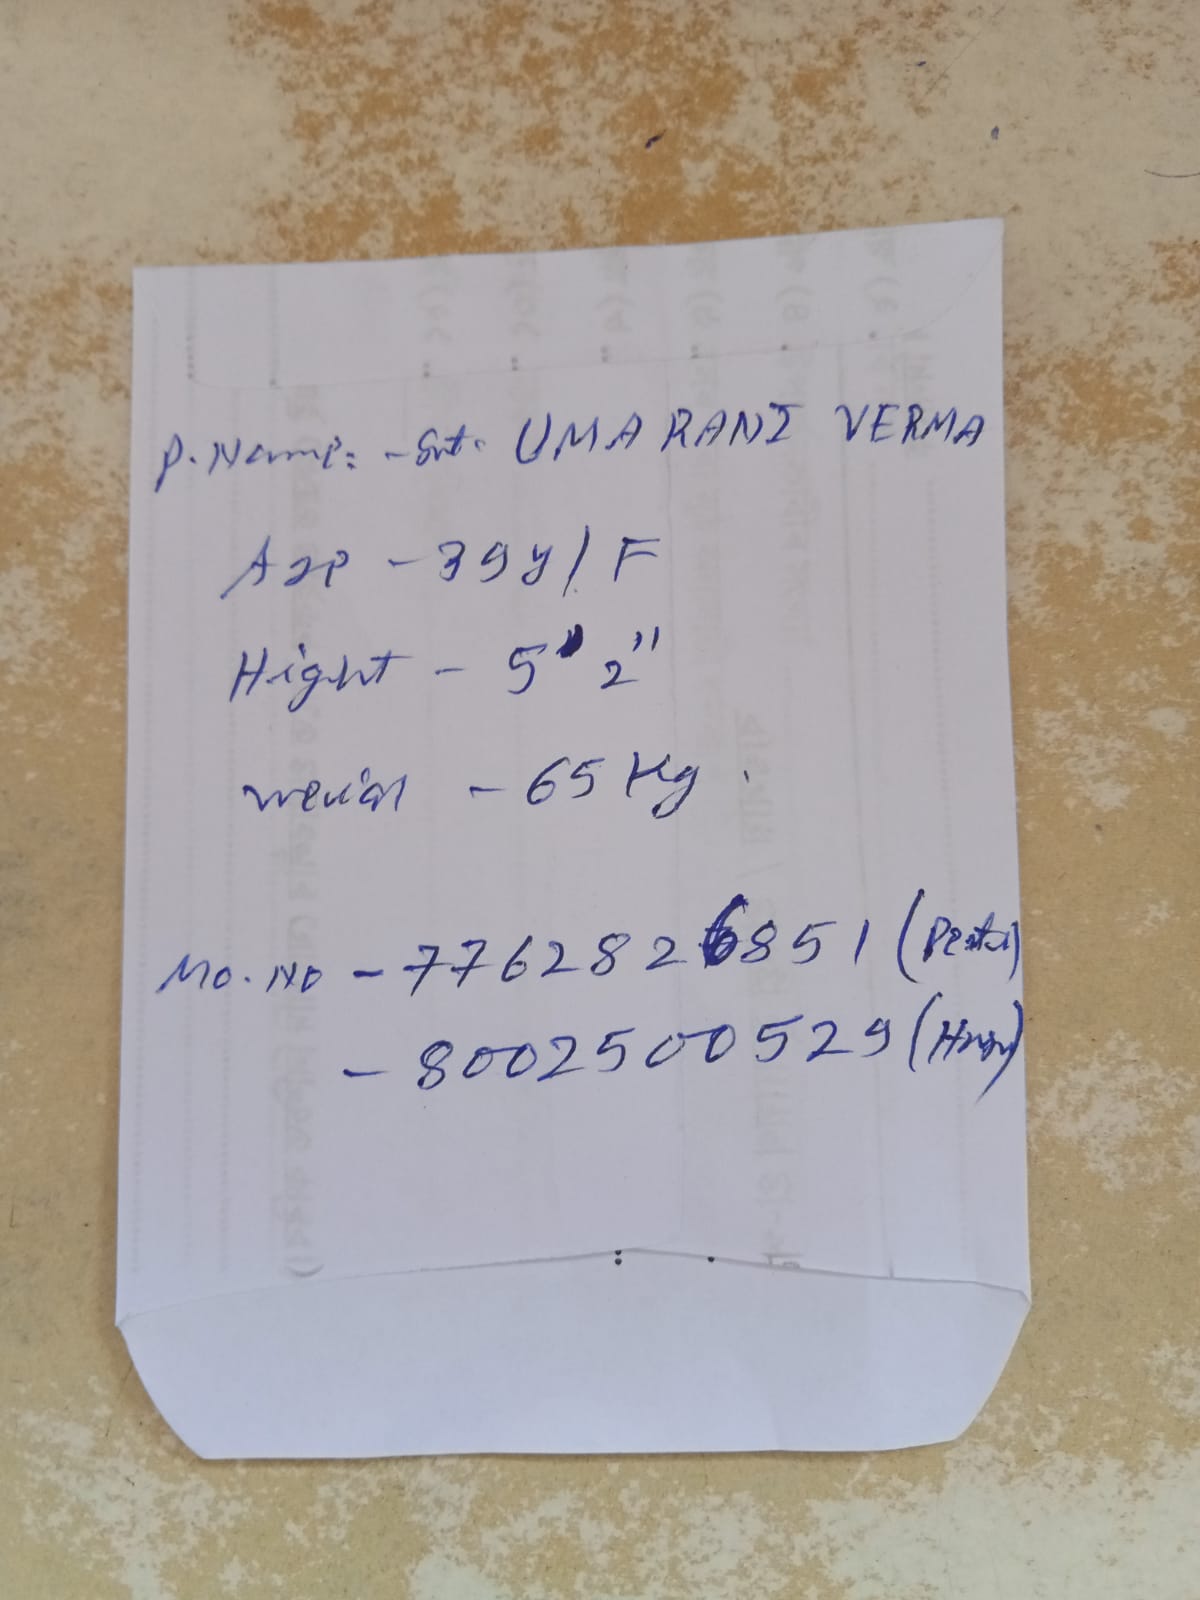 P. Name: - Smt. UMA RANI VERMA
Age - 39y/F
Hight - 5' 2"
- 65 Kg.
Mo. No - 7762826851
- 8002500529